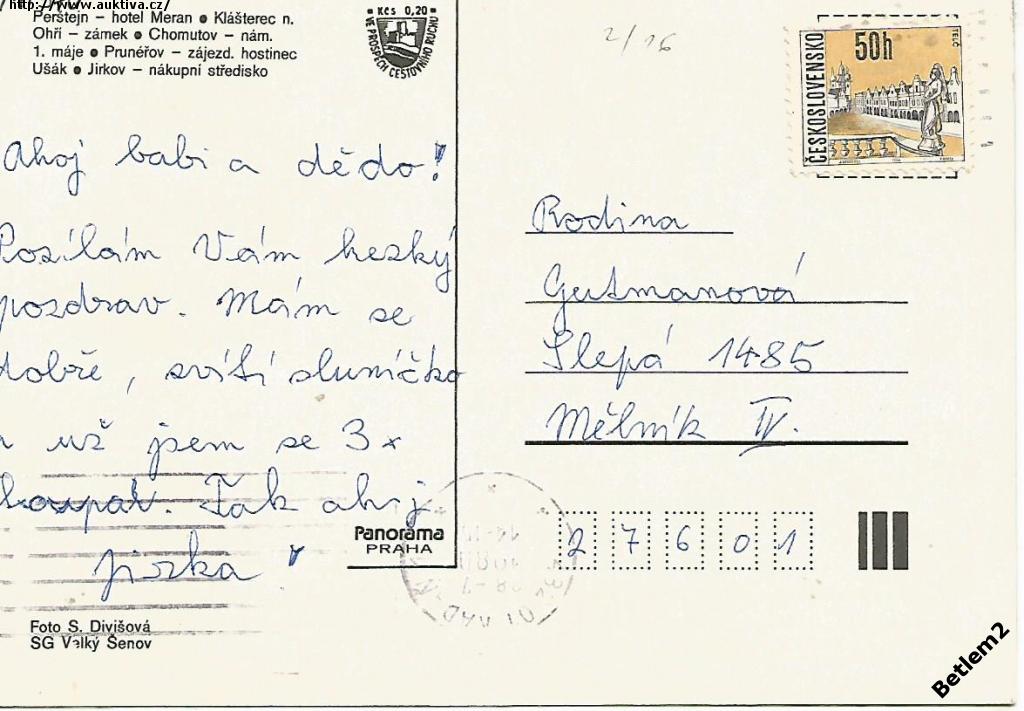 http://www.auktiva.cz/
Perštejn – hotel Meran ● Klášterec n.
Ohří – zámek ● Chomutov – nám.
1. máje ● Prunéřov – zájezd. hostinec
Ušák ● Jirkov – nákupní středisko
Kčs 0,20
VE PROSPĚCH CESTOVNÍHO RUCHU
2/16
ČESKOSLOVENSKO
50h
TELČ
Ahoj babi a dědo!
Posílám Vám hezký
pozdrav. Mám se
dobře, svítí sluníčko
a už jsem se 3x
koupal. Tak ahoj
jirka
Rodina
Gutmanová
Slepá 1485
Mělník IV.
27601
Panorama
PRAHA
Foto S. Divišová
SG Velký Šenov
Betlem2